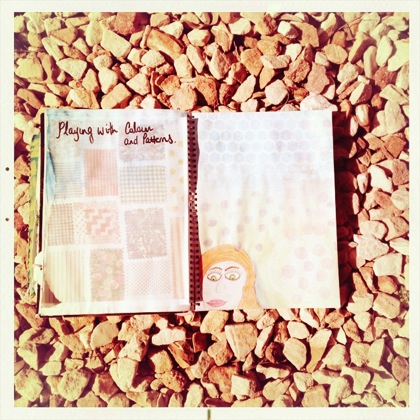 Playing with Colour
and Patterns.